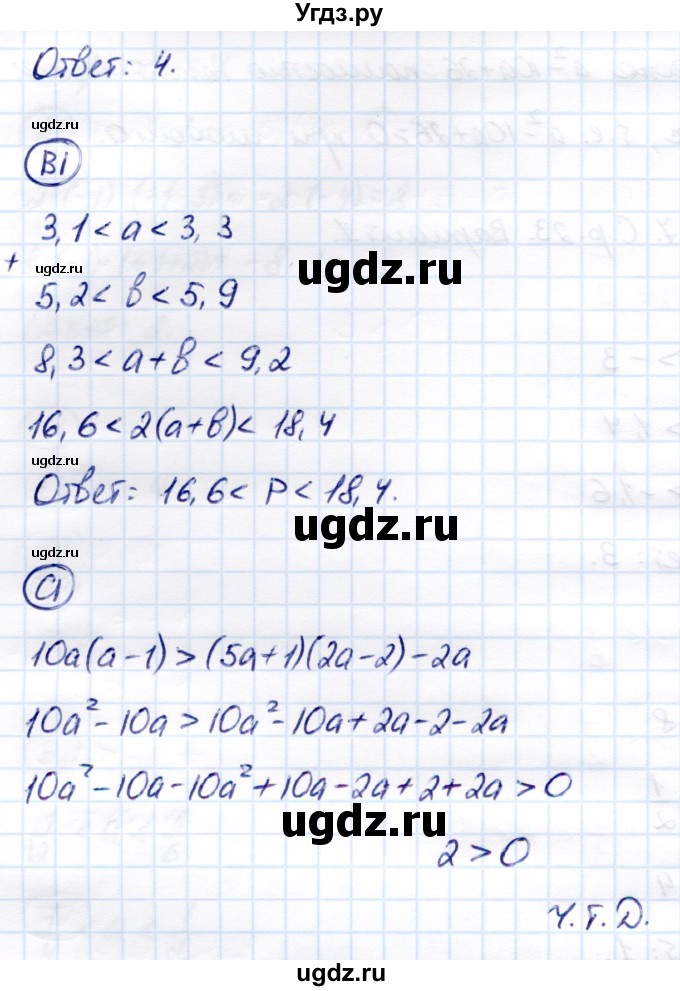 Угдз.ру
Ответ: 4.
ugdz.ru
В1
3,1 < a < 3,3
+
ugdz.ru
ugdz.ru
5,2 < b < 5,9
8,3 < a + b < 9,2
16,6 < 2(a + b) < 18,4
ugdz.ru
Ответ: 16,6 < P < 18,4.
ugdz.ru
ugdz.ru
С1
10a(a - 1) > (5a + 1)(2a - 2) - 2a
10a² - 10a > 10a² - 10a + 2a - 2 - 2a
10a² - 10a - 10a² + 10a - 2a + 2 + 2a > 0
ugdz.ru
2 > 0
Ч.Т.Д.
ugdz.ru